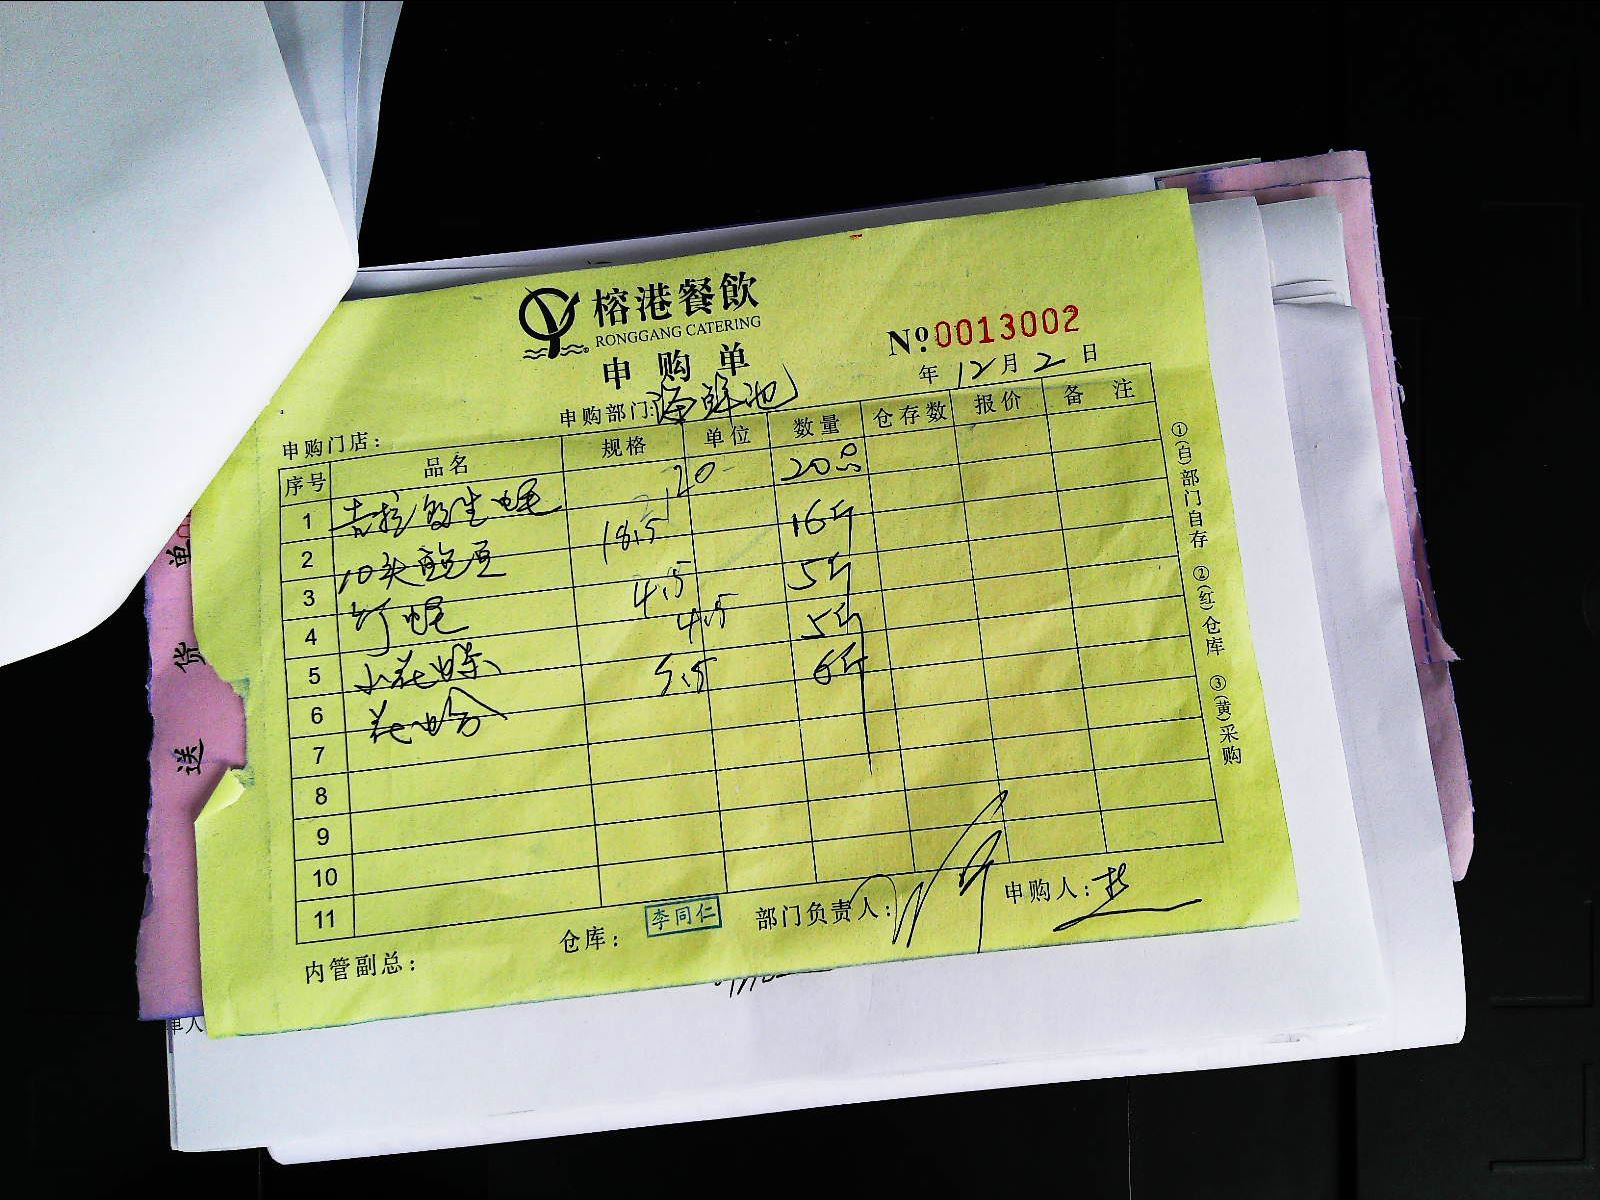 榕港餐飲
RONGGANG CATERING
申购单
№ 0013002
年 12 月 2 日
申购门店：
申购部门：海鲜池
序号 品名 规格 单位 数量 仓存数 报价 备注
1 吉拉多生蚝 20 20只
2 10头鲍 18.5 16斤
3 蚝 4.5 5斤
4 小花 4.5 5斤
5 花蛤 5.5 6斤
6
7
8
9
10
11
内管副总：
仓库：李同仁
部门负责人：
申购人：
①(白)部门自存 ②(红)仓库 ③(黄)采购
送货单
单人